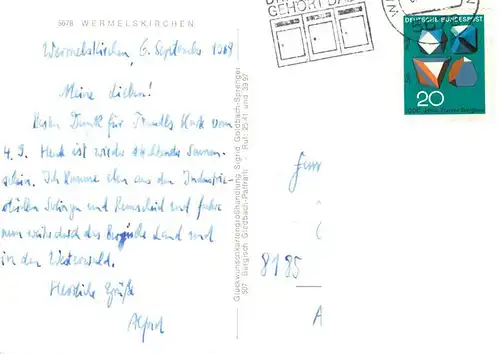 5678 WERMELSKIRCHEN
Wermelskirchen, 6. September 1968
Meine Lieben!
Besten Dank für Traudls Karte vom
4. 9. Heute ist wieder strahlender Sonnen-
schein. Ich komme eben aus den Industrie-
städten Solingen und Remscheid und fahre
nun weiter durch das Bergische Land und
in den Westerwald.
Herzliche Grüße
Alfred
Glückwunschkartengroßhandlung Sigrid Goldbach-Sprenger
507 Bergisch Gladbach-Paffrath - Ruf: 25 41 und 39 97
GEHÖRT DAS
DEUTSCHE BUNDESPOST
20
8185
A